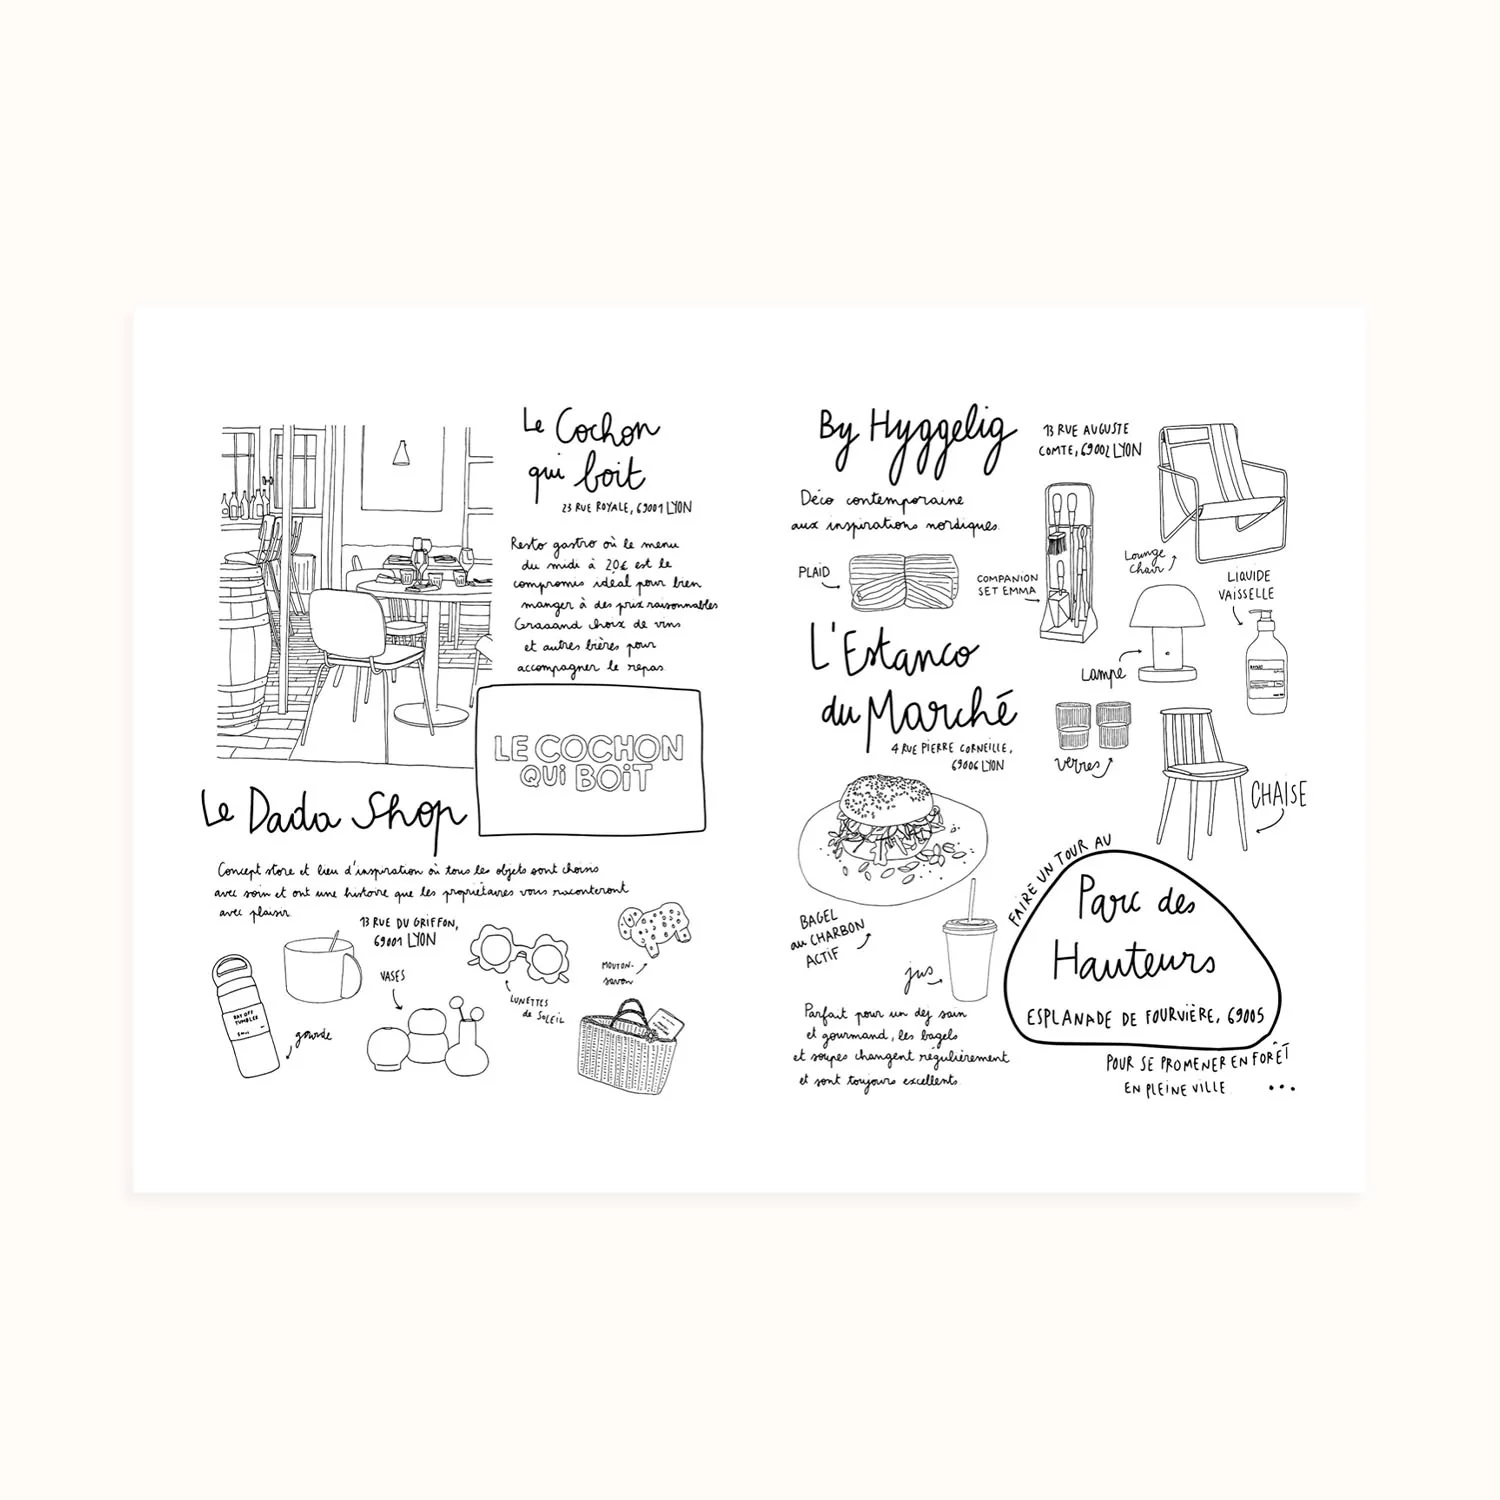 Le Cochon
qui boit
23 RUE ROYALE, 69001 LYON
Resto gastro où le menu
du midi à 20€ est le
compromis idéal pour bien
manger à des prix raisonnables
Graaaand choix de vins
et autres bières pour
accompagner le repas.
LE COCHON
QUi BOiT
Le Dada Shop
Concept store et lieu d'inspiration où tous les objets sont choisis
avec soin et ont une histoire que les propriétaires vous raconteront
avec plaisir.
13 RUE DU GRIFFON,
69001 LYON
DAY OFF
TUMBLER
gourde
VASES
LUNETTES
de SOLEIL
MOUTON-
savon
By Hyggelig
13 RUE AUGUSTE
COMTE, 69002 LYON
Déco contemporaine
aux inspirations nordiques.
PLAID
COMPANION
SET EMMA
Lounge
chair
LIQUIDE
VAISSELLE
Lampe
verres
CHAISE
L'Estanco
du Marché
4 RUE PIERRE CORNEILLE,
69006 LYON
BAGEL
au CHARBON
ACTiF
jus
Parfait pour un déj sain
et gourmand, les bagels
et soupes changent régulièrement
et sont toujours excellents.
FAIRE UN TOUR AU
Parc des
Hauteurs
ESPLANADE DE FOURVIÈRE, 69005
POUR SE PROMENER EN FORÊT
EN PLEINE VILLE ...